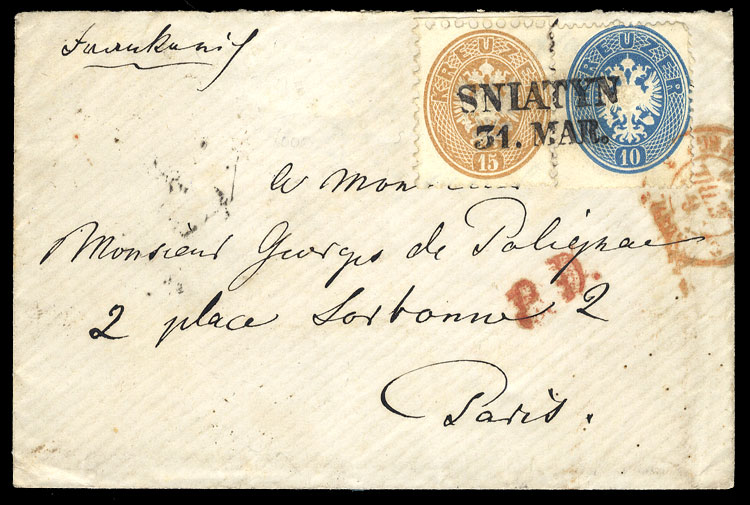 KREUZER
15
KREUZER
10
SNIATYN
31. MAR.
a Monsieur
Monsieur Georges de Polignac
P.D.
2 place Sorbonne 2
Paris.